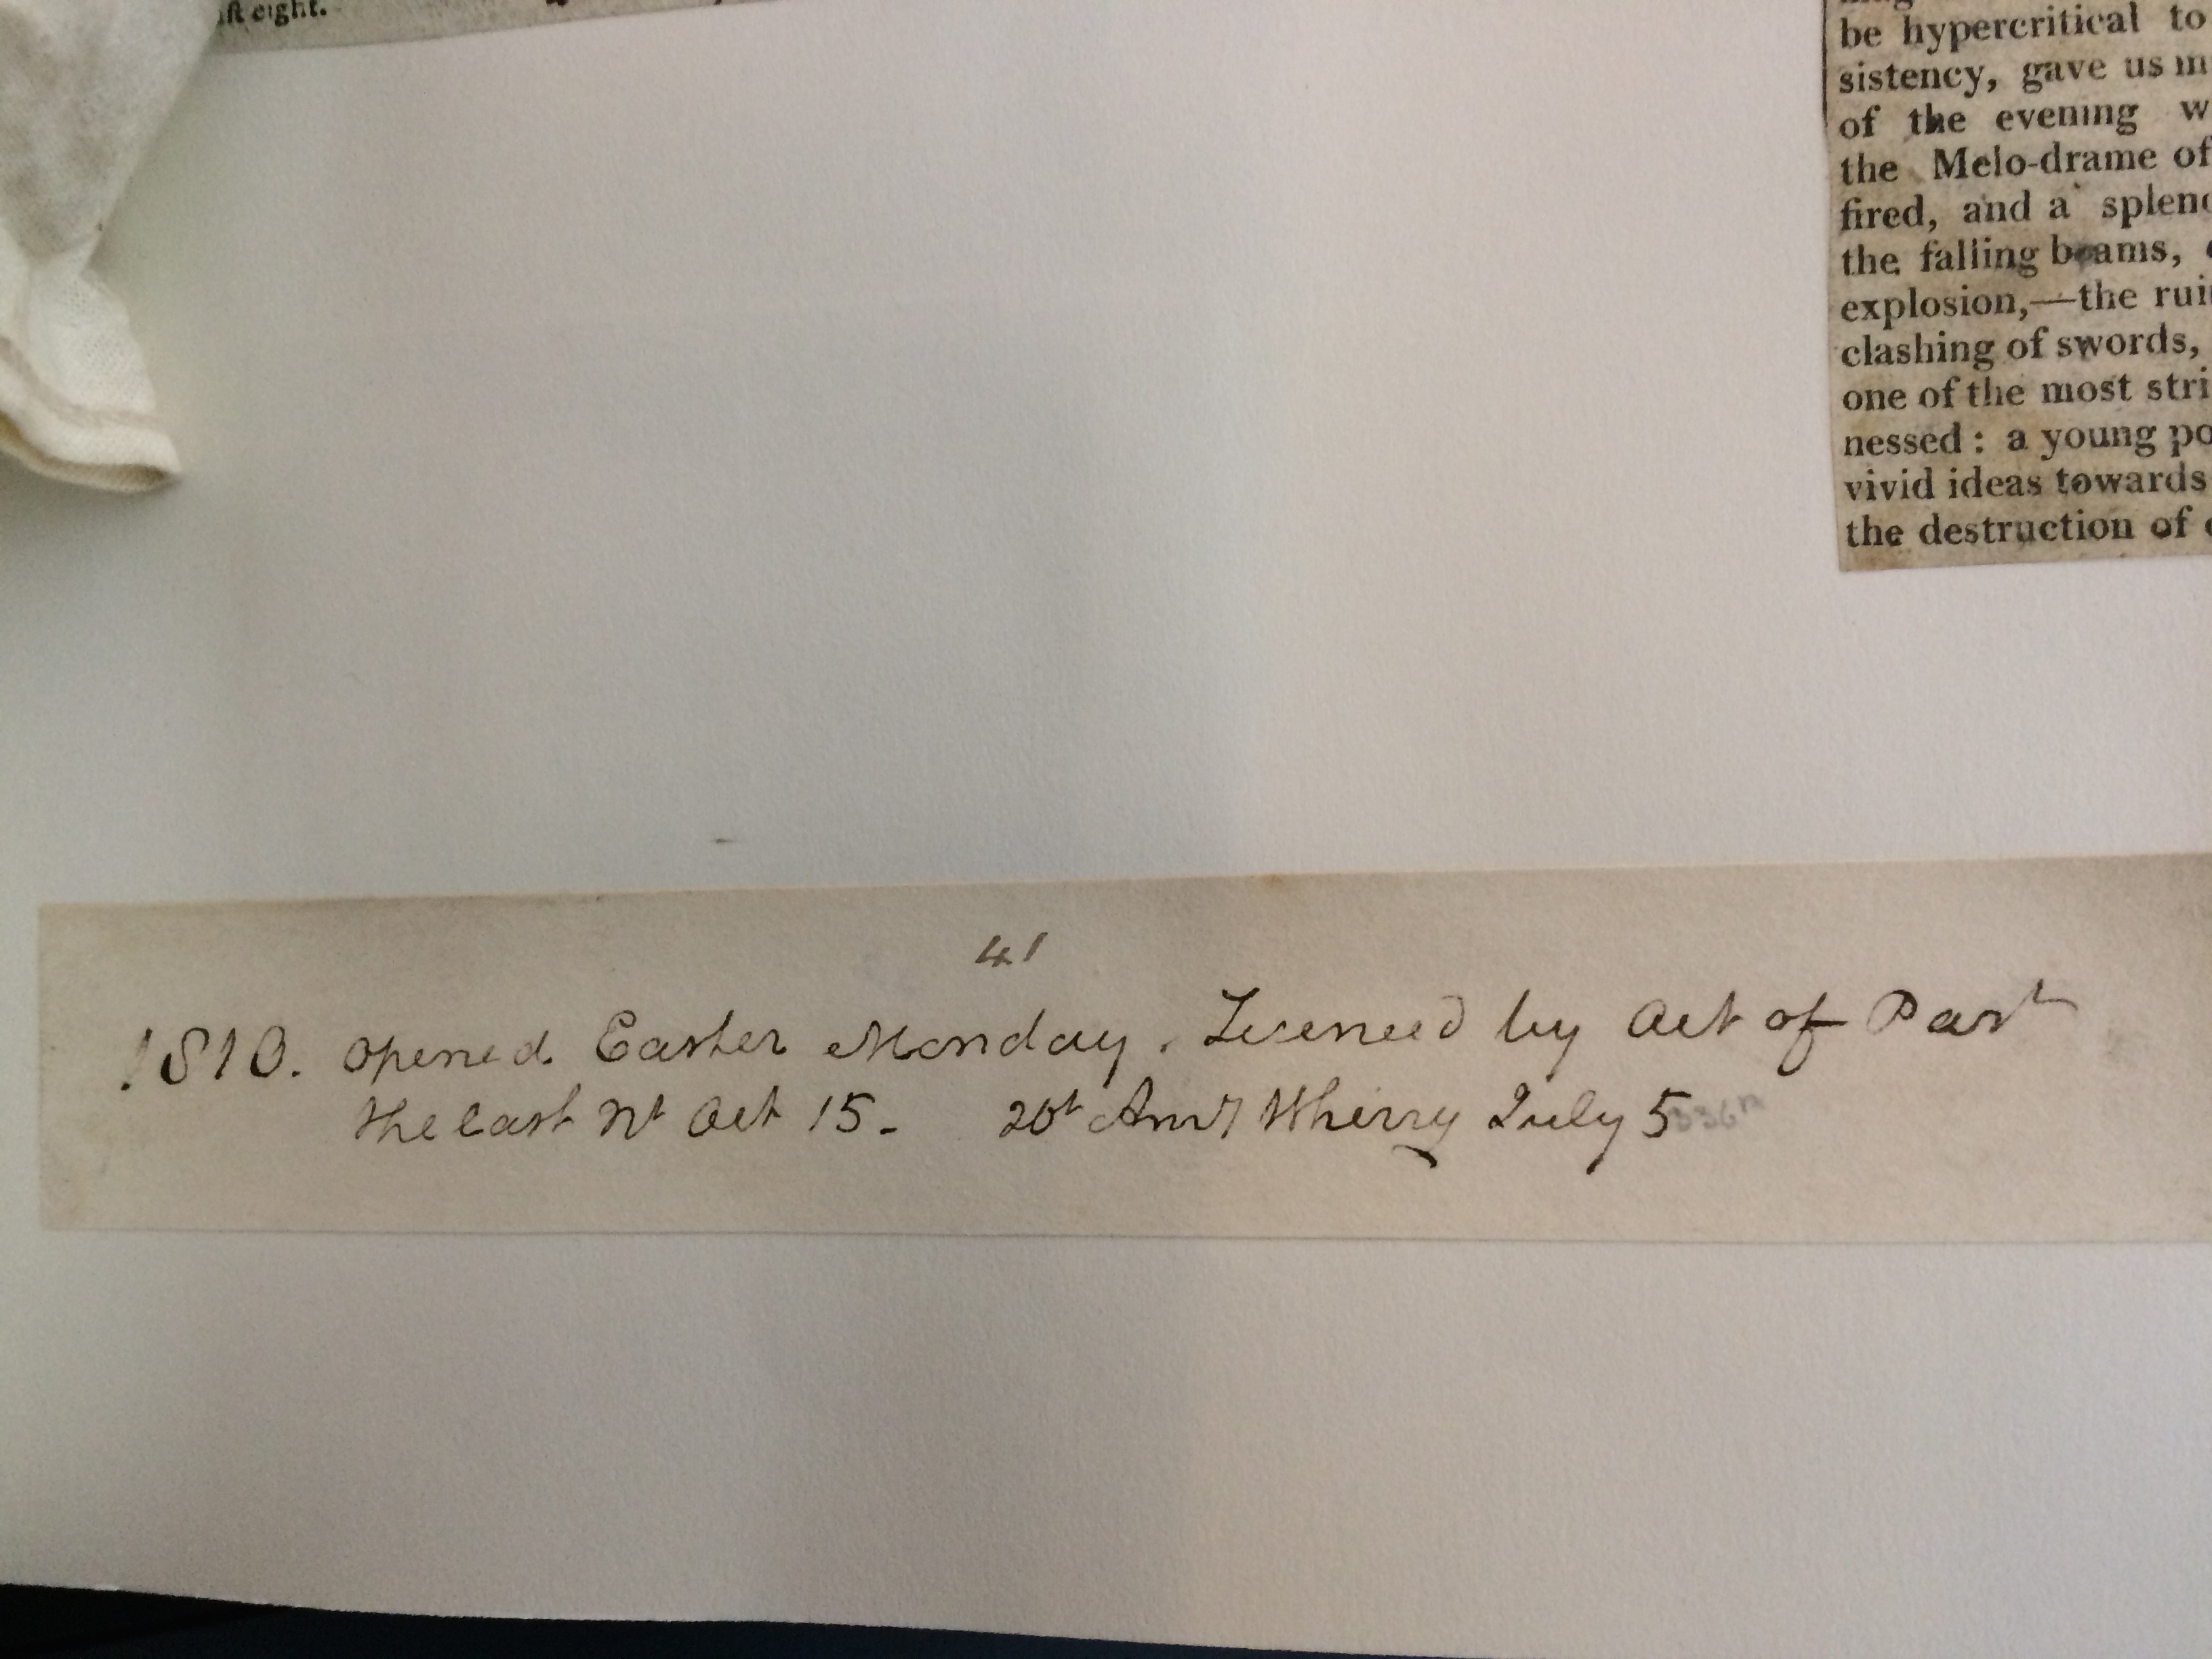 ft eight.
be hypercritical to
sistency, gave us in
of the evening w
the Melo-drame of
fired, and a splen
the falling beams,
explosion,—the rui
clashing of swords,
one of the most stri
nessed : a young po
vivid ideas towards
the destruction of
41
1810. opened Easter Monday. Licenced by Act of Part
the last Nt Oct 15. 20t Anl Wherry July 5